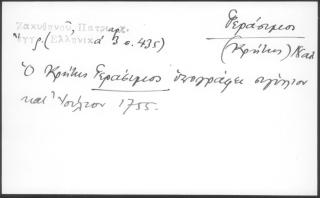 Ζακυθηνοῦ, Πατριαρ.
ἔγγρ. (Ἑλληνικὰ 3 σ. 435)
Γεράσιμος
(Κρήτης)
Ὁ Κρήτης Γεράσιμος ὑπογράφει σιγίλλιον
κατ' Ἰούλιον 1755.